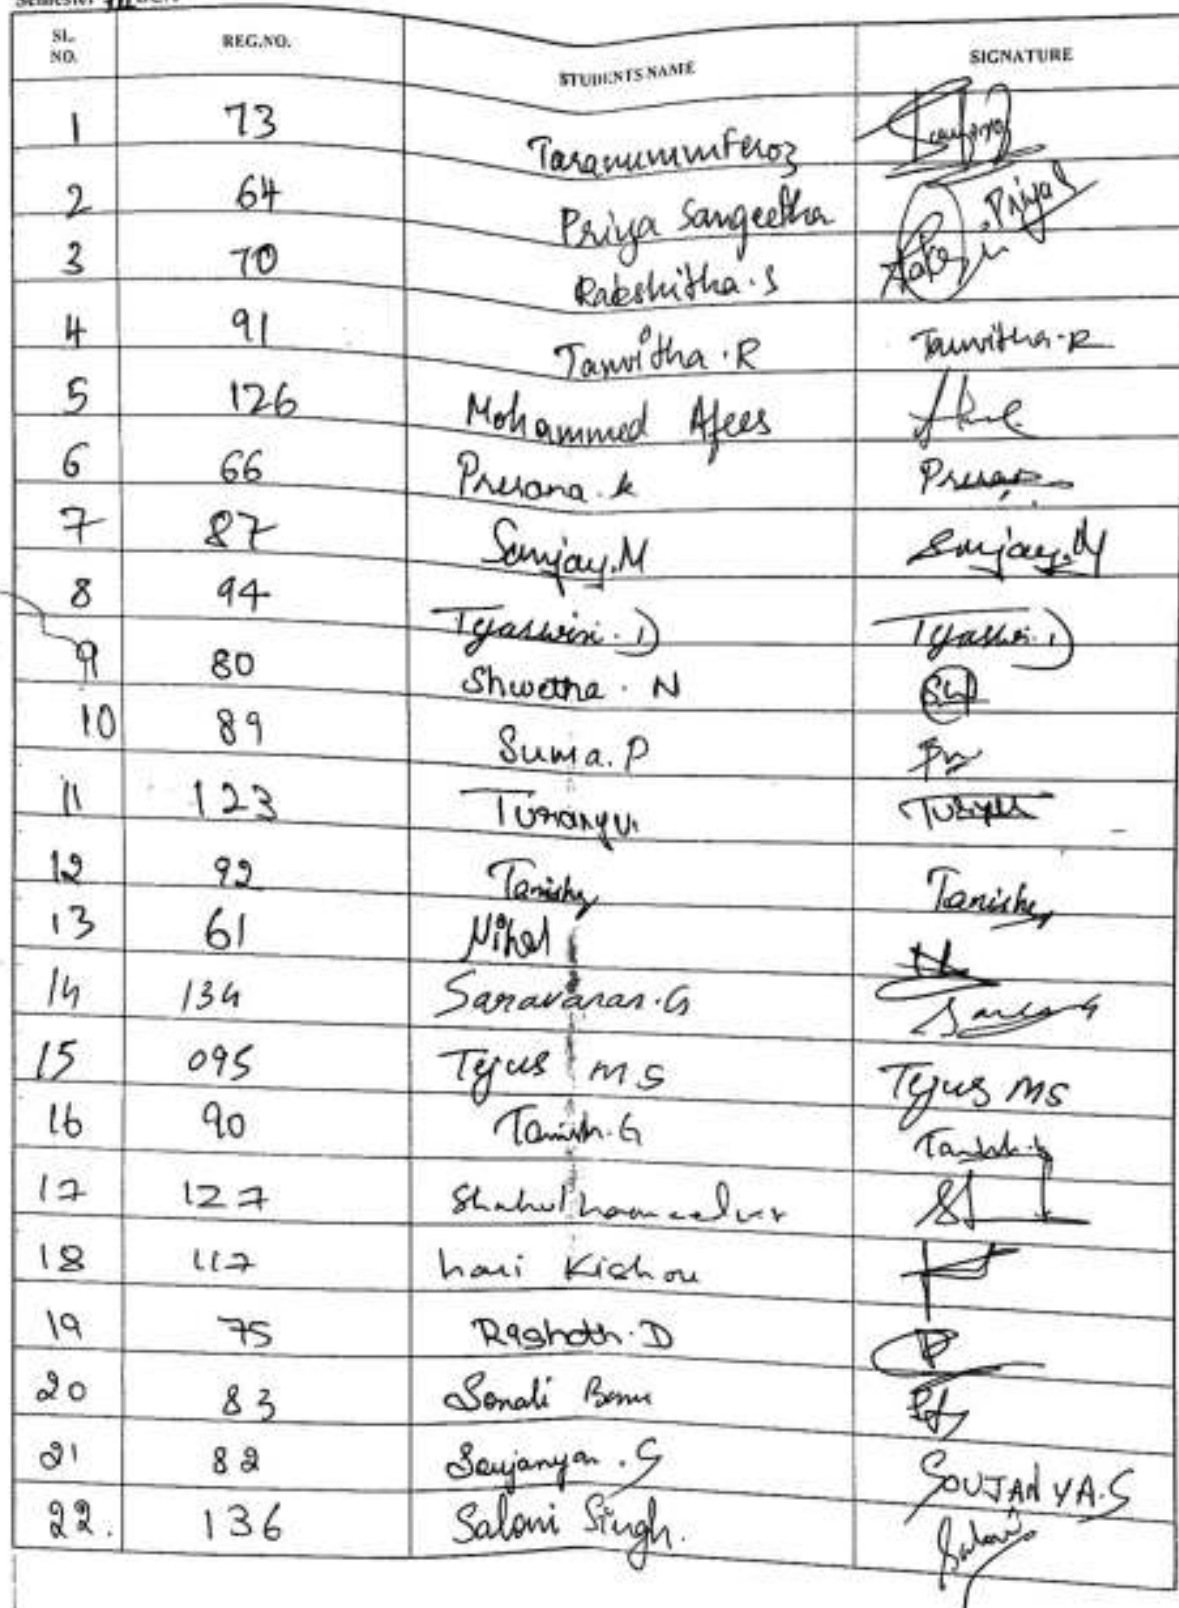 Semester III
SL. NO. REG.NO. STUDENTS NAME SIGNATURE
1 73 Taranummferoz
2 64 Priya Sangeetha Priya S
3 70 Rakshitha.S
4 91 Tanvitha.R Tanvitha.R
5 126 Mohammed Afees
6 66 Prerana.k
7 87 Sanjay.M Sanjay.M
8 94 Tejaswini.D
9 80 Shwetha.N
10 89 Suma.P
11 123
12 92 Tanisha Tanisha
13 61 Nihal
14 134 Saravanan.G
15 095 Tejus MS Tejus MS
16 90 Tanish.G Tanish.G
17 127
18 117 hari Kishore
19 75
20 83 Sonali
21 82 Soujanya.S SOUJANYA.S
22. 136 Saloni Singh. Saloni